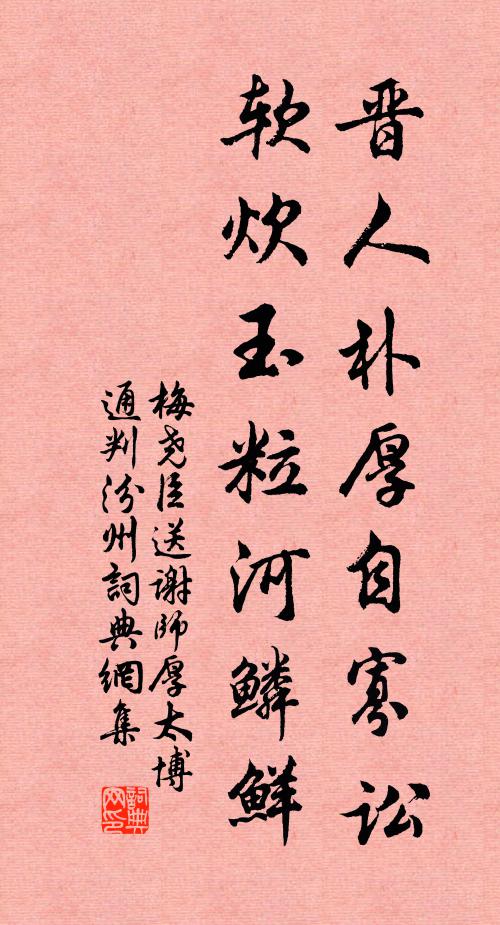 晋人朴厚自寡讼
软炊玉粒河鳞鲜
梅尧臣送谢师厚太博
通判汾州词典网集
词典网印